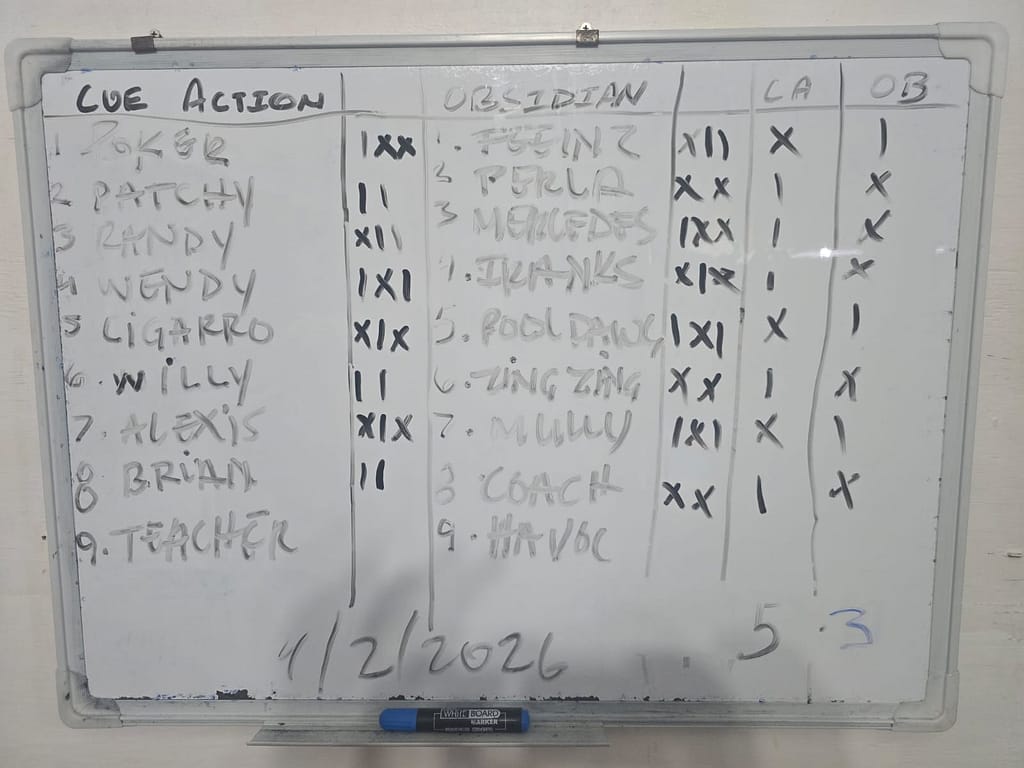 CUE ACTION OBSIDIAN CA OB
1 POKER IXX 1. FEEINZ XII X I
2 PATCHY II 2 PERLA XX I X
3 RANDY XII 3 MERCEDES IXX I X
4 WENDY IXI 4. IKANKS XIX I X
5 CIGARRO XIX 5. POOLDAWG IXI X I
6. WILLY II 6. ZING ZING XX I X
7. ALEXIS XIX 7. MULLY IXI X I
8 BRIAN II 8 COACH XX I X
9. TEACHER 9. HAVOC
1/2/2026 5.3
WHITE BOARD
MARKER